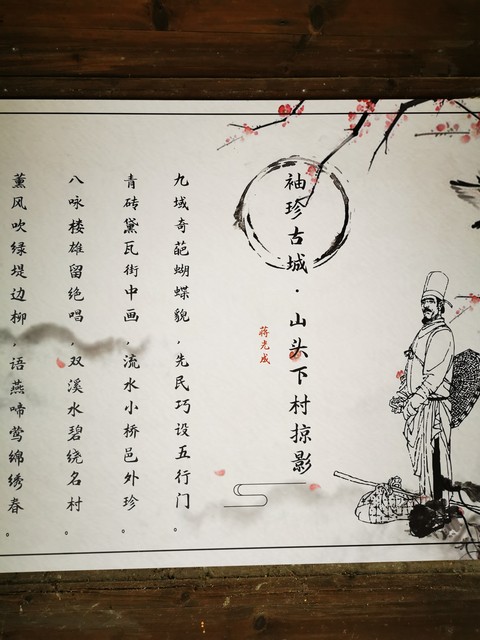 袖珍古城·山头下村掠影
蒋光成
九域奇葩蝴蝶貌，先民巧设五行门。
青砖黛瓦街中画，流水小桥邑外珍。
八咏楼雄留绝唱，双溪水碧绕名村。
薰风吹绿堤边柳，语燕啼莺绵绣春。